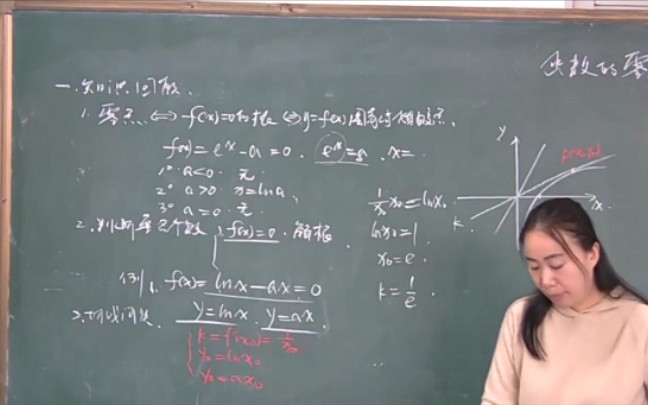 函数的零
一、知识回顾、
1. 零点 ⟺ f(x)=0的根 ⟺ y=f(x)图像与x轴交点、
f(x)=eˣ-a=0. eˣ=a. x=
1° a<0. 无.
2° a>0. x=lna.
3° a=0. 无
2. 判断零点个数 1. f(x)=0. 解根.
例1. f(x)=lnx-ax=0
y=lnx. y=ax
3. 切线问题.
k=f'(x₀)=1/x₀
y₀=lnx₀
y₀=ax₀
1/x₀ x₀=lnx₀.
lnx₀=1.
x₀=e.
k=1/e.
y
p(x₀,y₀)
x.
k.